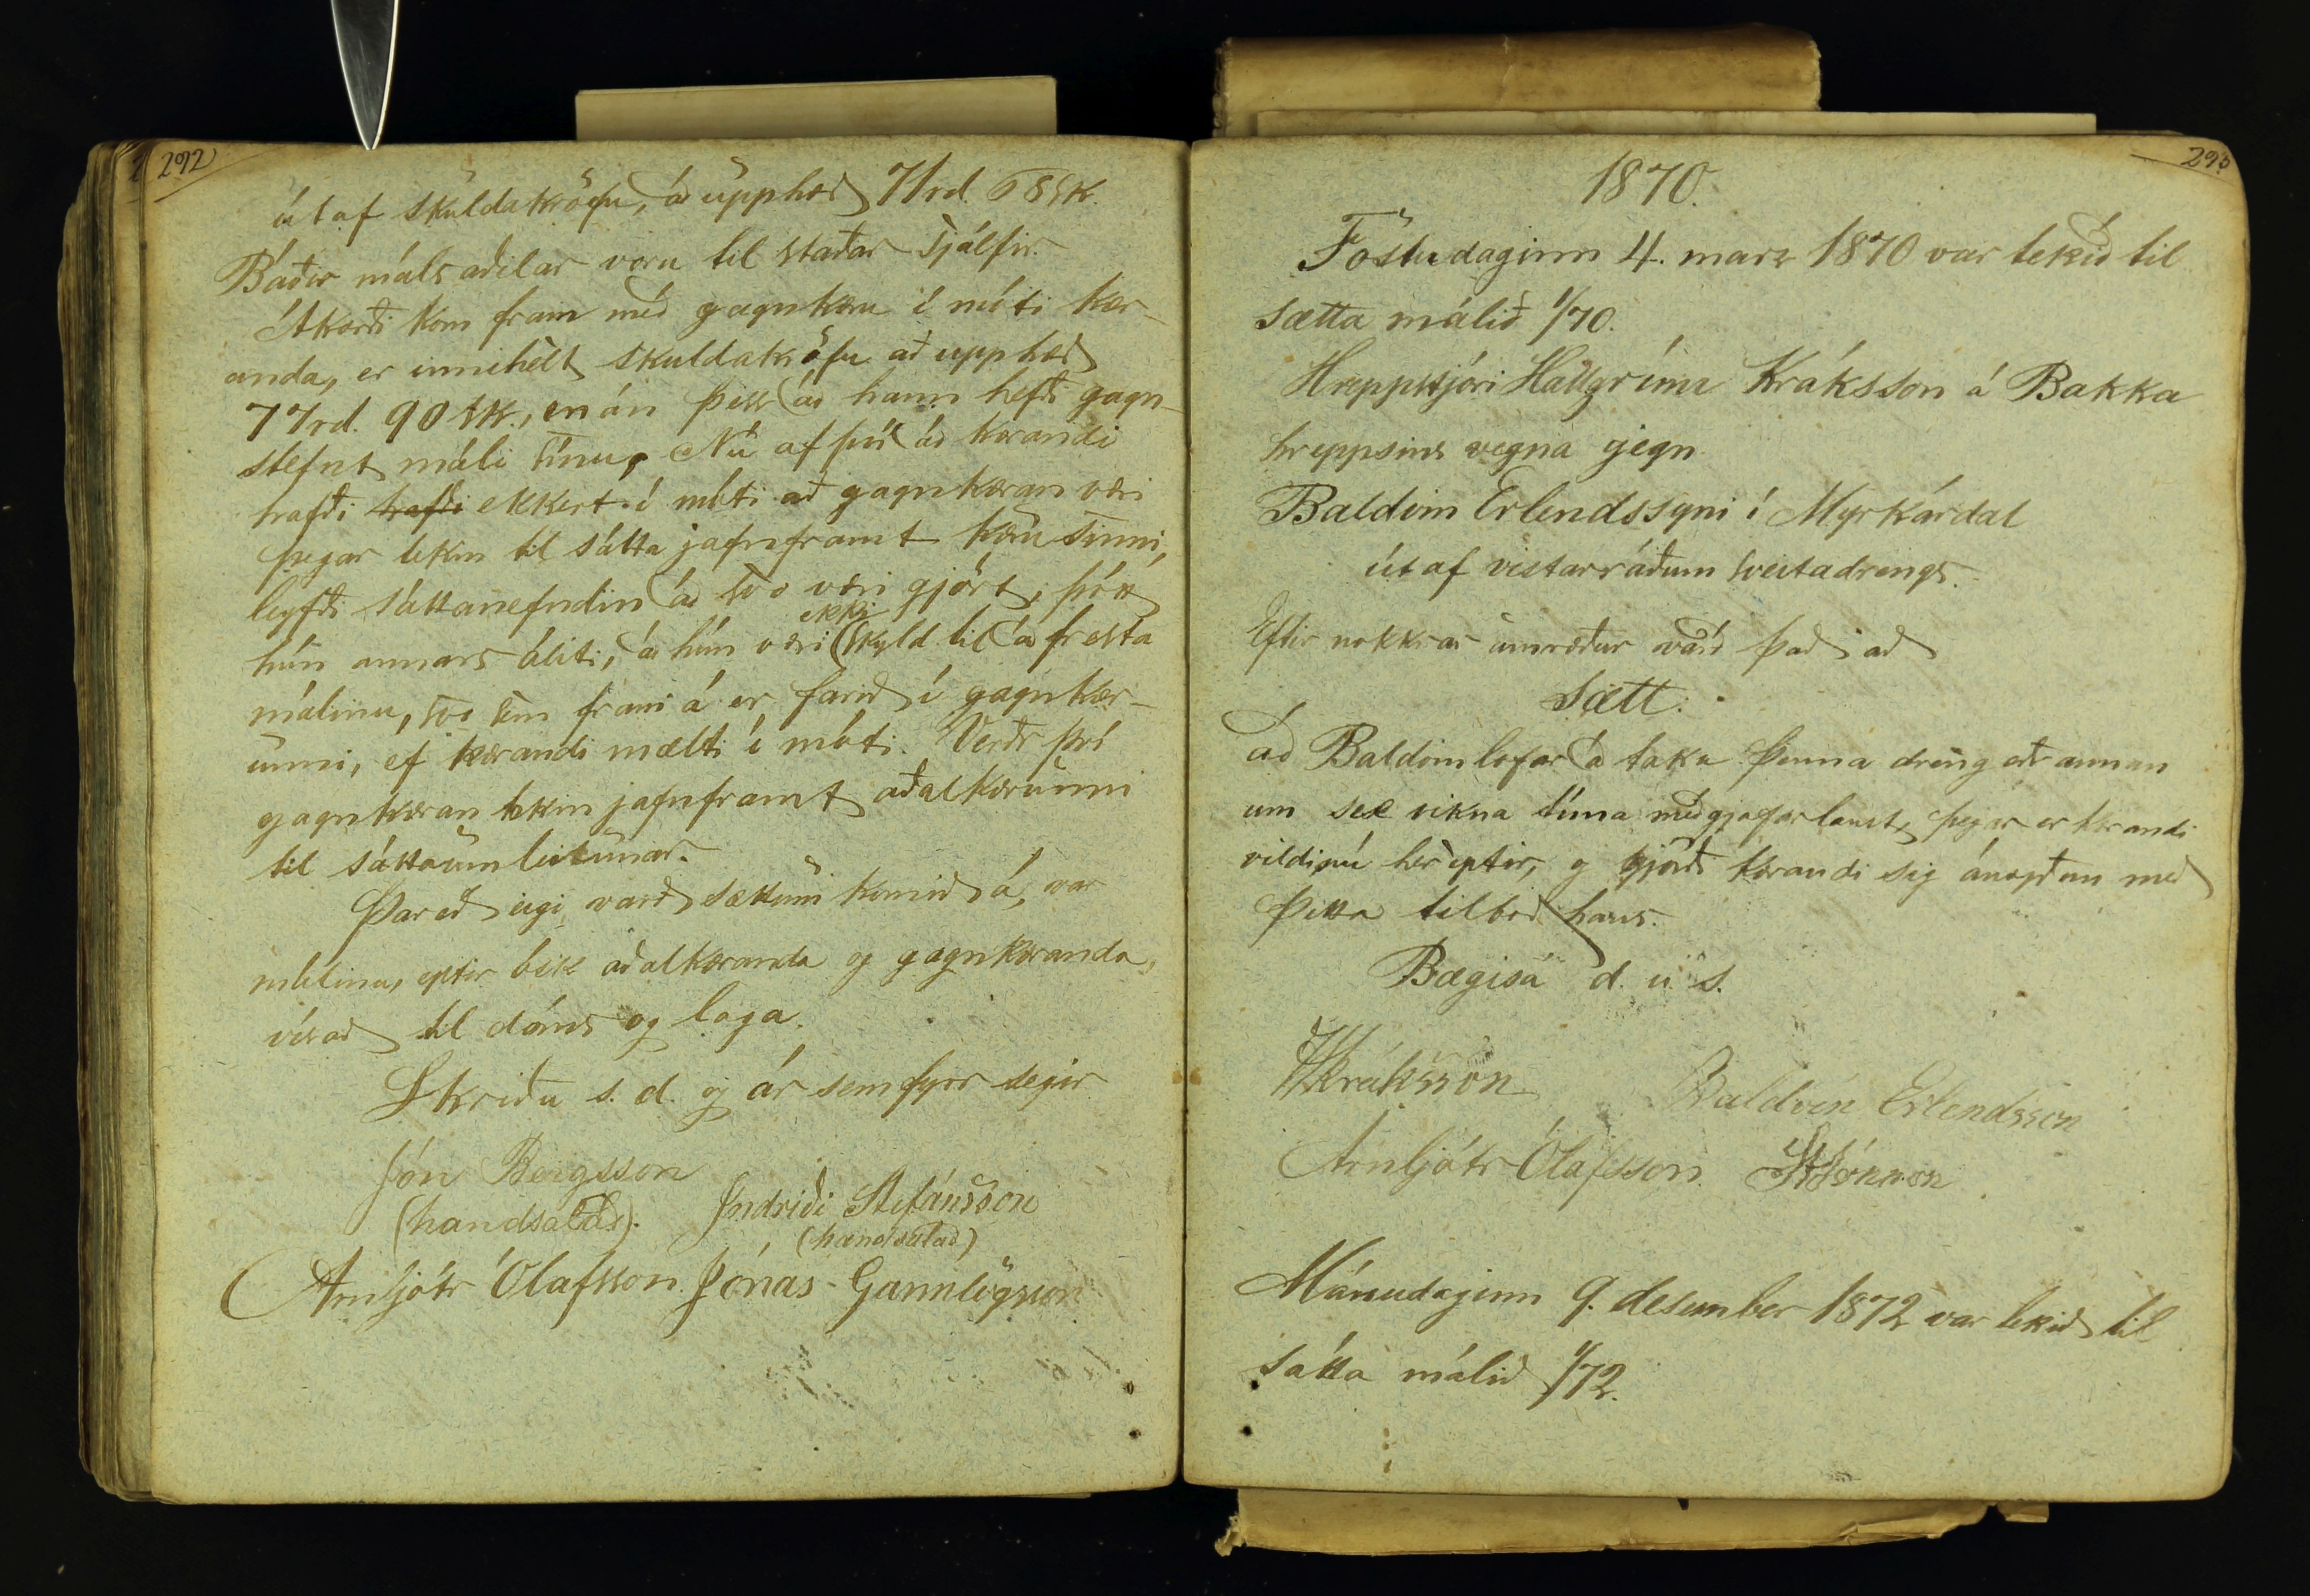 292
út af skuldakröfu, að upphæð 71rd. 68sk.
Báðir málsaðilar voru til staðar sjálfir.
Ákærði kom fram með gagnkæru í móti kær-
anda, er innihélt skuldakröfu að upphæð
77rd. 90 sk., en án þess að hann hefði gagn-
stefnt máli sínu. Nú af því að kærandi
hafði hafði ekkert í móti að gagnkæran væri
þegar tekin til sátta jafnframt kæru sinni,
leyfði sáttanefndin að svo væri gjört, þótt
hún annars áliti, að hún væri ekki skyld til að fresta
málinu, svo sem fram á er farið í gagnkær-
unni, ef kærandi mælti í móti. Verðr því
gagnkæran tekin jafnframt aðalkærunni
til sáttaumleitunar.
Þareð eigi varð sættum komið á, var
málinu, eptir ósk aðalkæranda og gagnkæranda,
vísað til dóms og laga.
Skriðu s. d. og ár sem fyrr segir
Jón Bergsson
(handsalað). Indriði Stefánsson
(handsalað)
Arnljótr Ólafsson. Jónas Gunnlögsson
293
1870.
Föstudaginn 4. marz 1870 var tekið til
sætta málið 1/70.
Hreppstjóri Hallgrímr Kráksson á Bakka
hreppsins vegna gegn
Baldvin Erlendssyni í Myrkárdal
út af vistarráðum sveitadrengs.
Eftir nokkrar umræður varð það að
Sætt:
að Baldvin lofar að taka þenna dreng eðr annan
um sex vikna tíma meðgjafarlaust, þegar er kærandi
vildi nú hér eptir, og gjörði kærandi sig ánægðan með
þetta tilboð hans.
Bægisá d. u. s.
HKráksson Baldvin Erlendsson
Arnljótr Ólafsson. StJónsson
Mánudaginn 9. desember 1872 var tekið til
sátta málið 1/72.